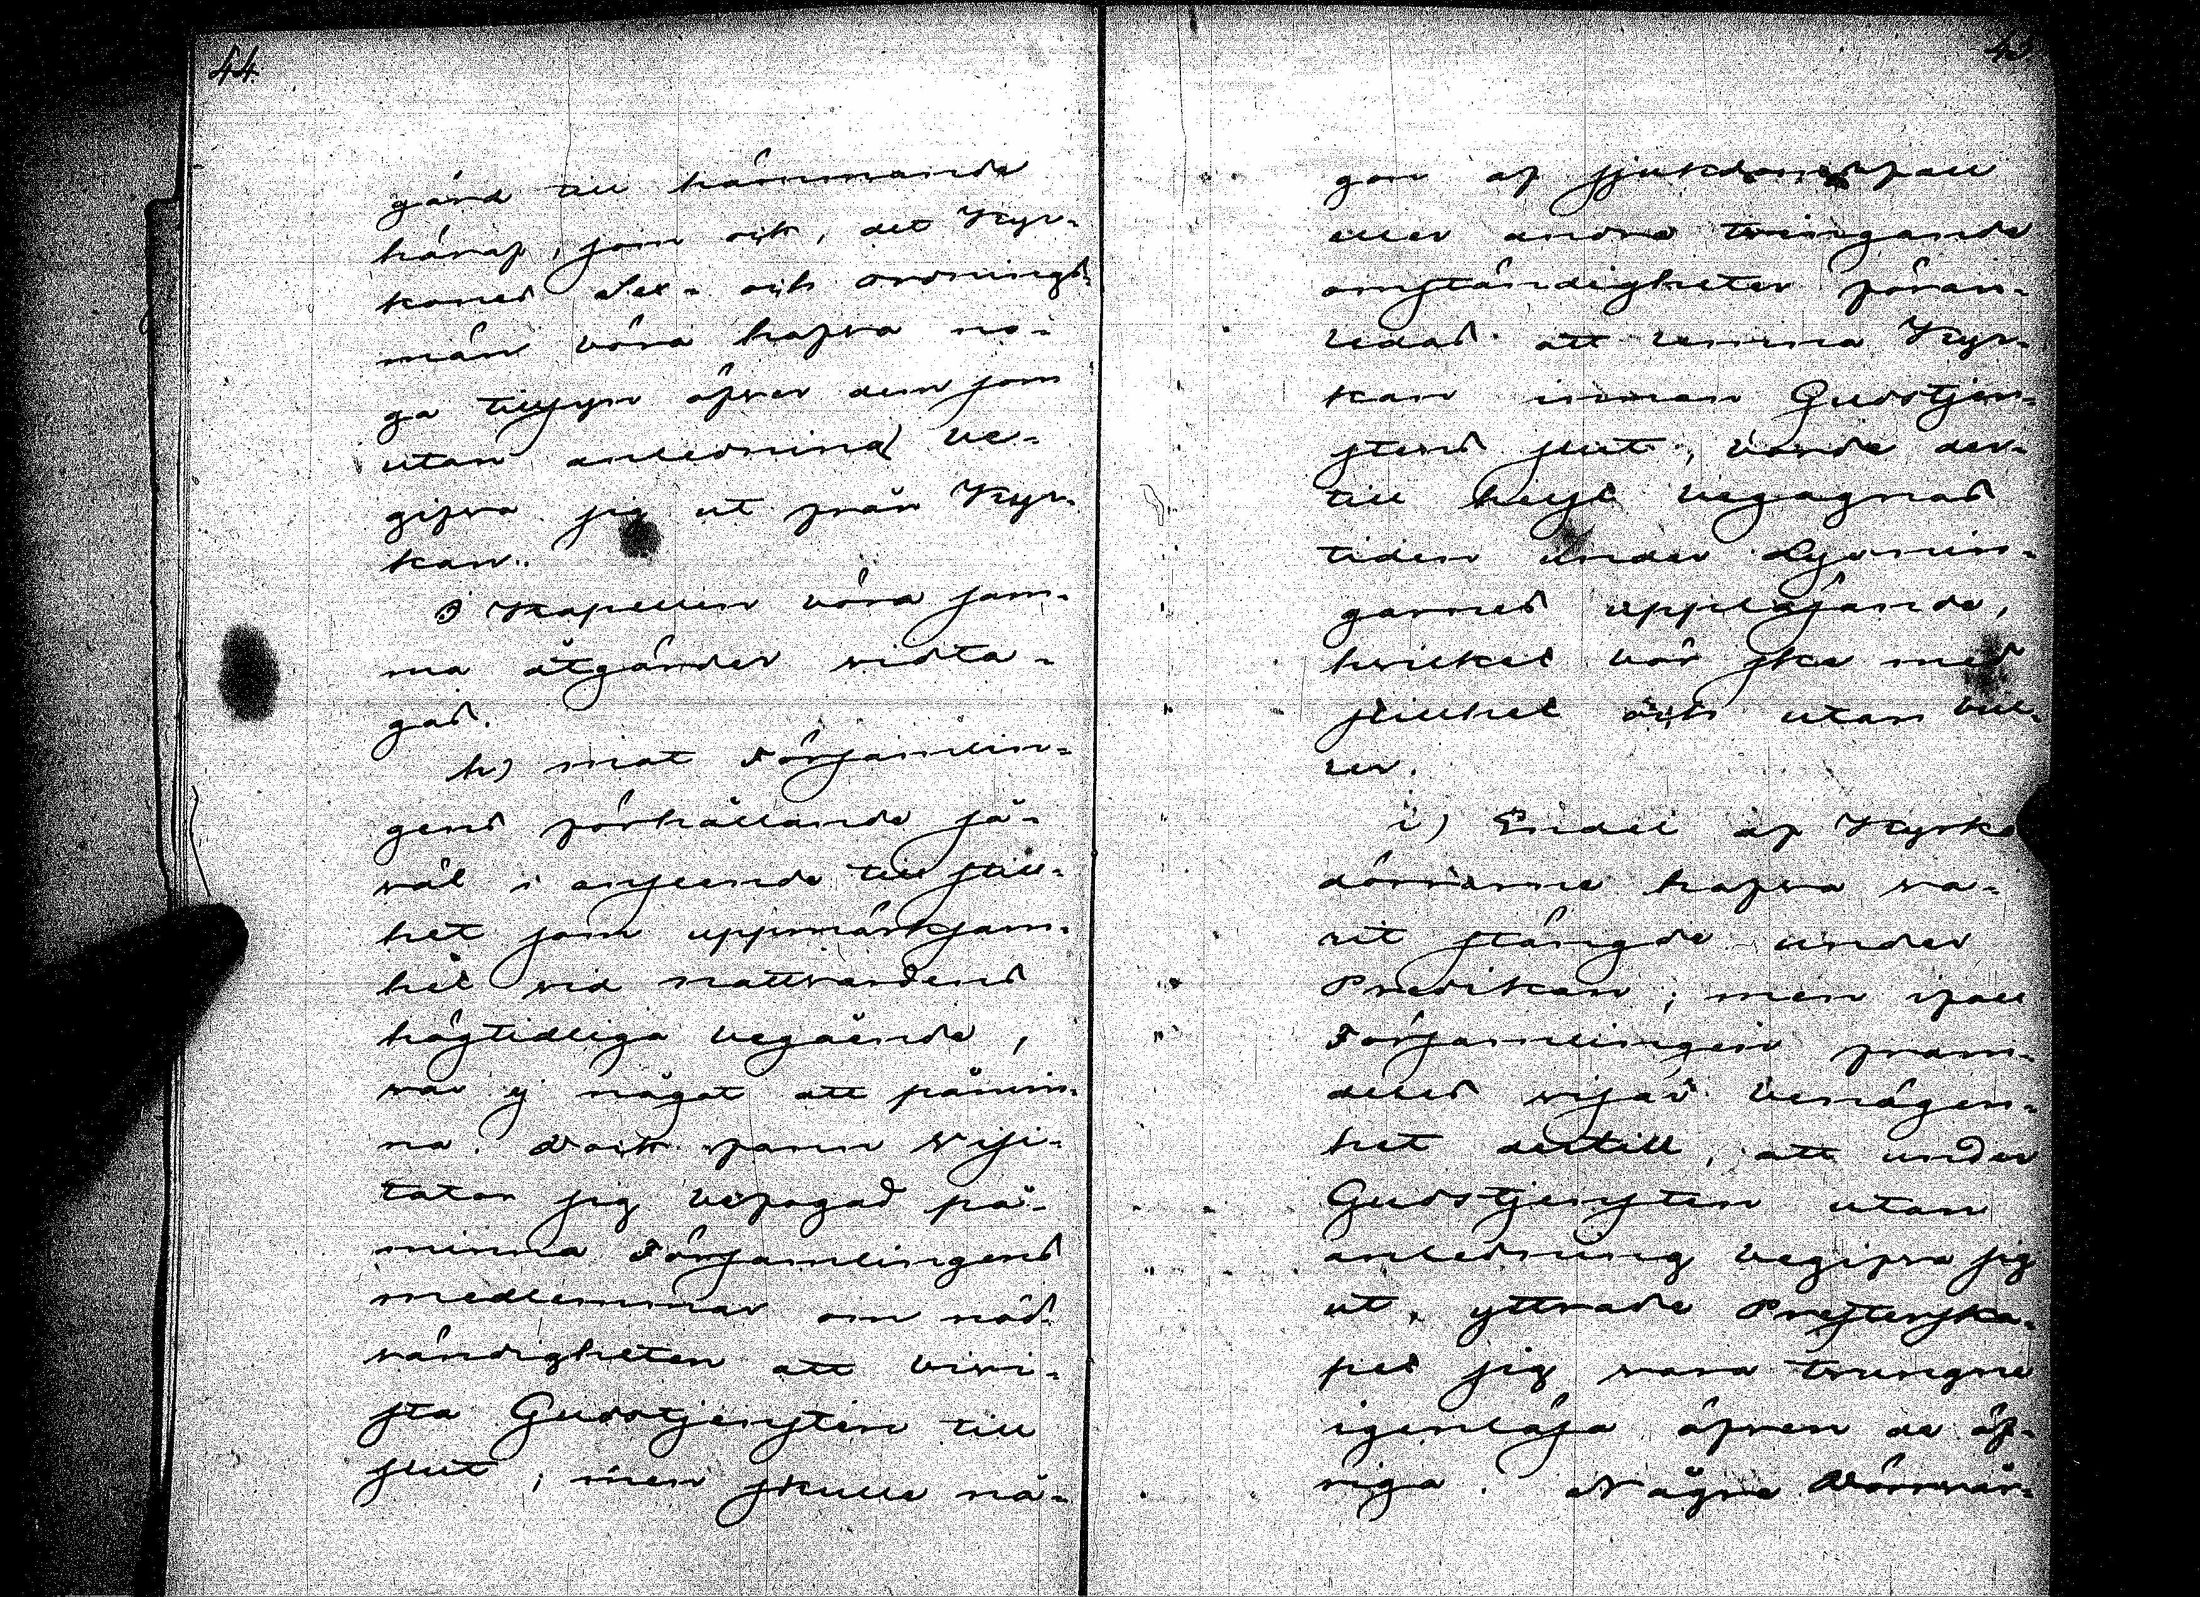 44
gärd till hämmande
häraf, som och, det Kyr-
kones Sex- och ordnings-
män böra hafva no-
ga tillsyn öfver dem som
utan anledning be-
gifva sig ut från Kyr-
kan.
I Kapellen böra sam-
ma åtgärder vidta-
gas.
h) mot Församlin-
gens förhållande så-
väl i anseende till still-
het som uppmärksam-
het vid nattvardens
högtidliga begående,
var ej något att påmin-
na. Dock fann Visi-
tator sig befogad på-
minna Församlingens
medlemmar om nöd-
vändigheten att bivi-
sta Gudstjensten till
slut; men skulle nå-
45
gon af sjukdomsfall
eller andra tvingande
omständigheter föran-
ledas att lemna Kyr-
kan innan Gudstjen-
stens slut, borde der-
till helst begagnas
tiden under Lysnin-
garnes uppläsande,
hvilket bör ske med
stillhet och utan bul-
ler.
i) Endel af Kyrko
dörrarne hafva va-
rit stängde under
Predikan; men ifall
Församlingen fram-
deles visar benägen-
het dertill, att under
Gudstjensten utan
anledning begifva sig
ut, yttrade Presterska-
pet sig vara tvungne
igenlåsa äfven de öf-
riga. Några Dörrvär-